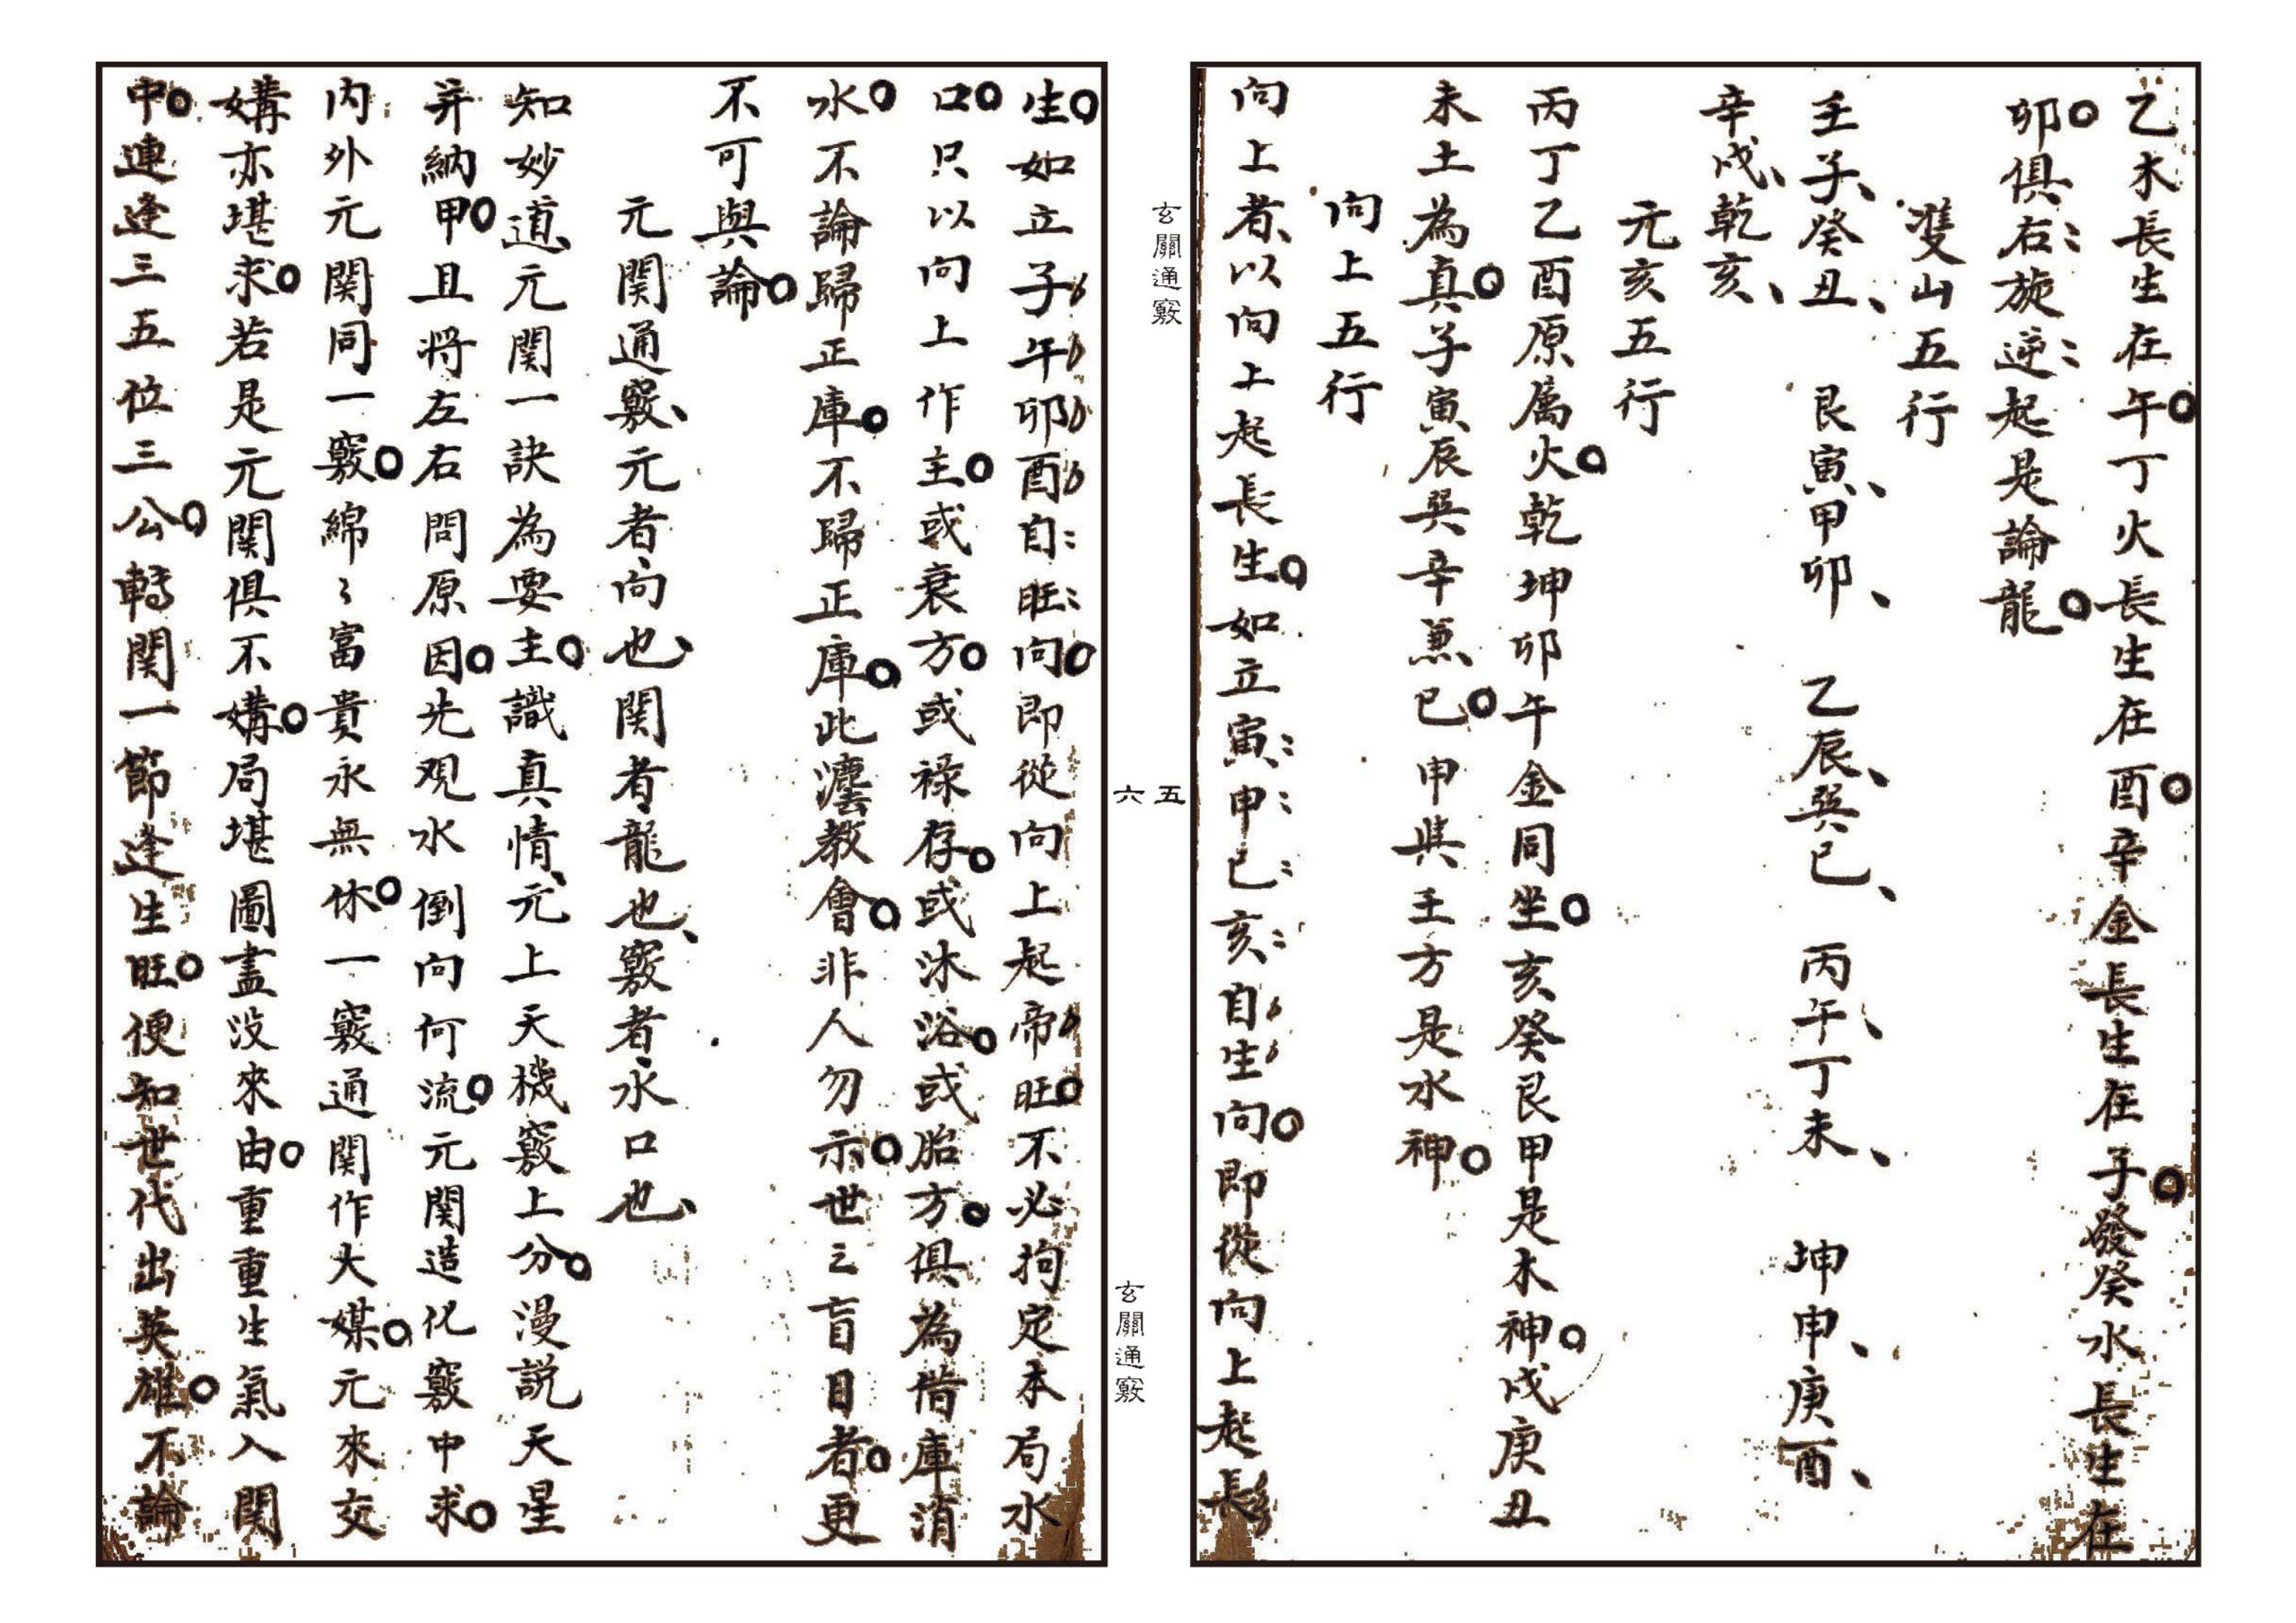 乙木長生在午丁火長生在酉辛金長生在子發癸水長生在
卯俱右旋逆起是論龍
雙山五行
壬子癸丑　艮寅甲卯　乙辰巽巳　丙午丁未　坤申庚酉
辛戌乾亥
元亥五行
丙丁乙酉原属火乾坤卯午金同坐亥癸艮甲是木神戌庚丑
未土為真子寅辰巽辛兼巳申與壬方是水神
向上五行
向上者以向上起長生如立寅申巳亥自生向即從向上起長
玄關通竅
五
六
玄關通竅
生如立子午卯酉自旺向即從向上起帝旺不必拘定本局水
口只以向上作主或衰方或祿存或沐浴或胎方俱為借庫消
水不論歸正庫不歸正庫此澐教會非人勿示世之盲目者更
不可與論
元関通竅元者向也関者龍也竅者水口也
知妙道元関一訣為要主識真情元上天機竅上分漫説天星
并納甲且将左右問原因先观水倒向何流元関造化竅中求
内外元関同一竅綿〻富貴永無休一竅通関作大媒元來交
媾亦堪求若是元関俱不媾局堪圖盡没來由重重生氣入関
中連逢三五位三公轉関一節逢生旺便知世代出英雄不論